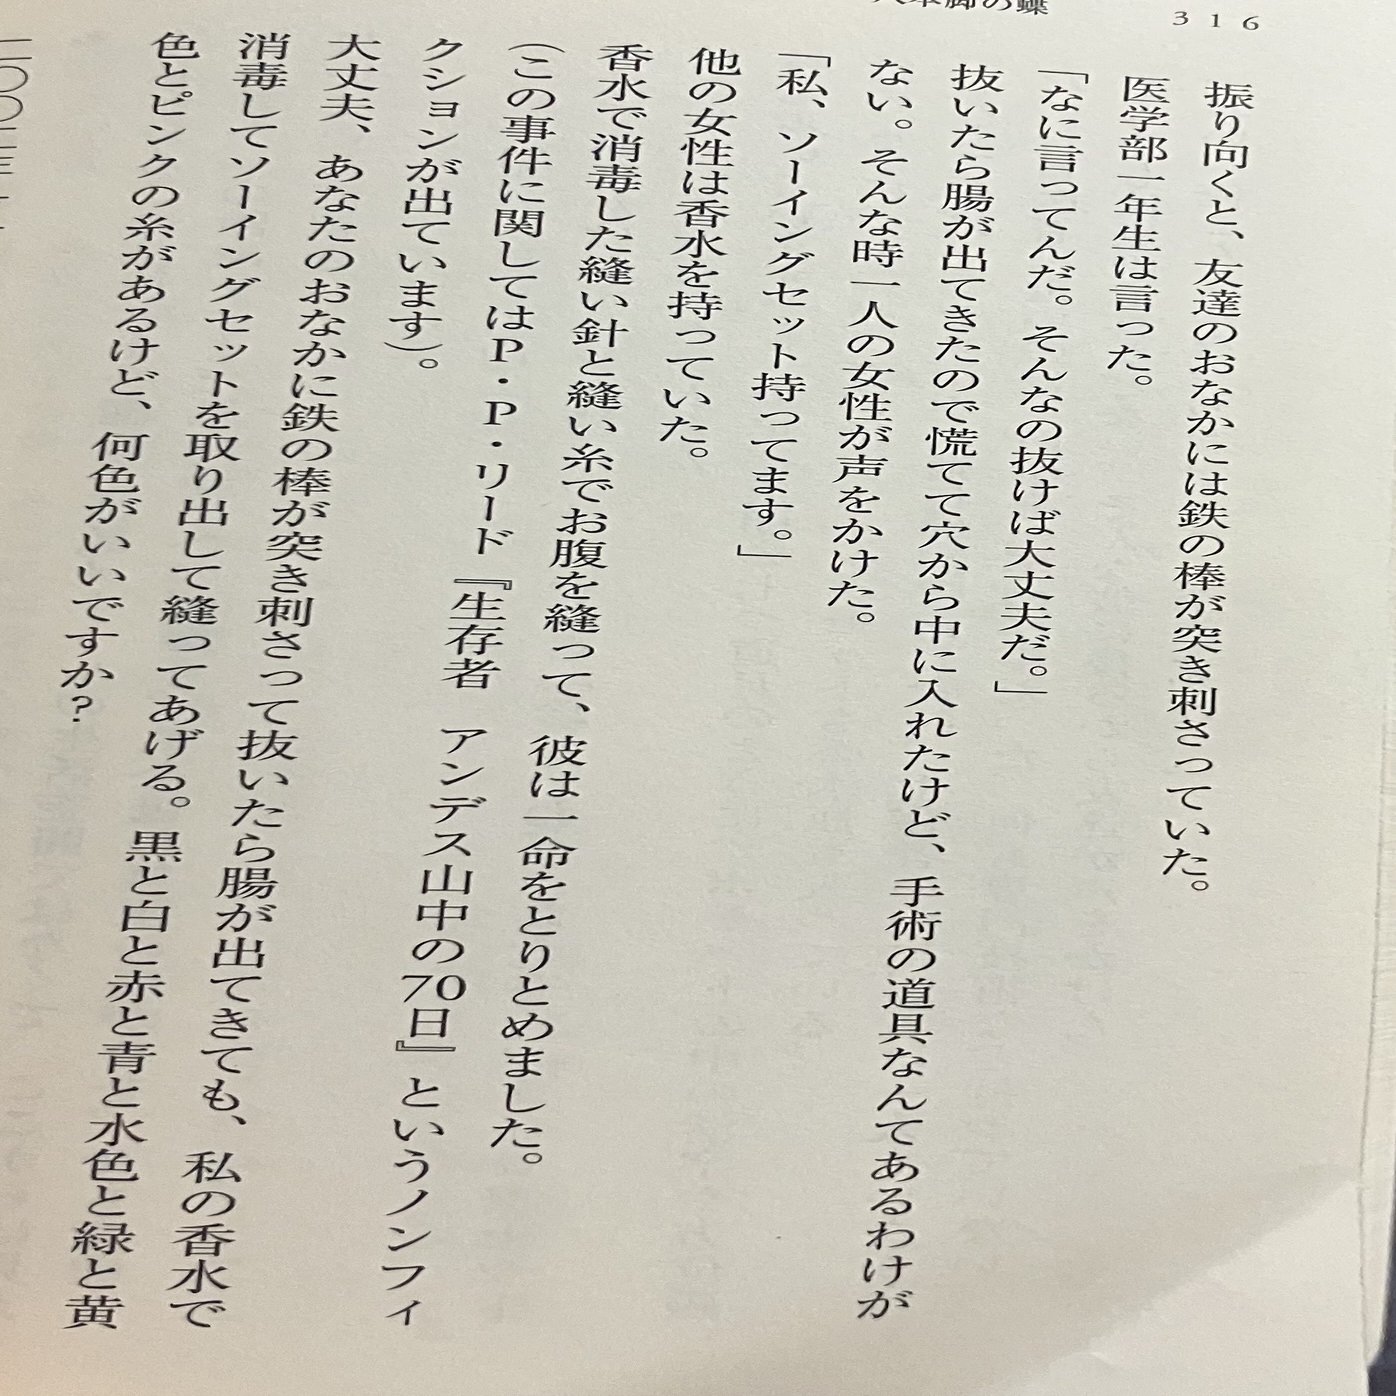 316
の蝶
振り向くと、友達のおなかには鉄の棒が突き刺さっていた。
医学部一年生は言った。
「なに言ってんだ。そんなの抜けば大丈夫だ。」
抜いたら腸が出てきたので慌てて穴から中に入れたけど、手術の道具なんてあるわけが
ない。そんな時一人の女性が声をかけた。
「私、ソーイングセット持ってます。」
他の女性は香水を持っていた。
香水で消毒した縫い針と縫い糸でお腹を縫って、彼は一命をとりとめました。
（この事件に関してはP・P・リード『生存者　アンデス山中の70日』というノンフィ
クションが出ています）。
大丈夫、あなたのおなかに鉄の棒が突き刺さって抜いたら腸が出てきても、私の香水で
消毒してソーイングセットを取り出して縫ってあげる。黒と白と赤と青と水色と緑と黄
色とピンクの糸があるけど、何色がいいですか？